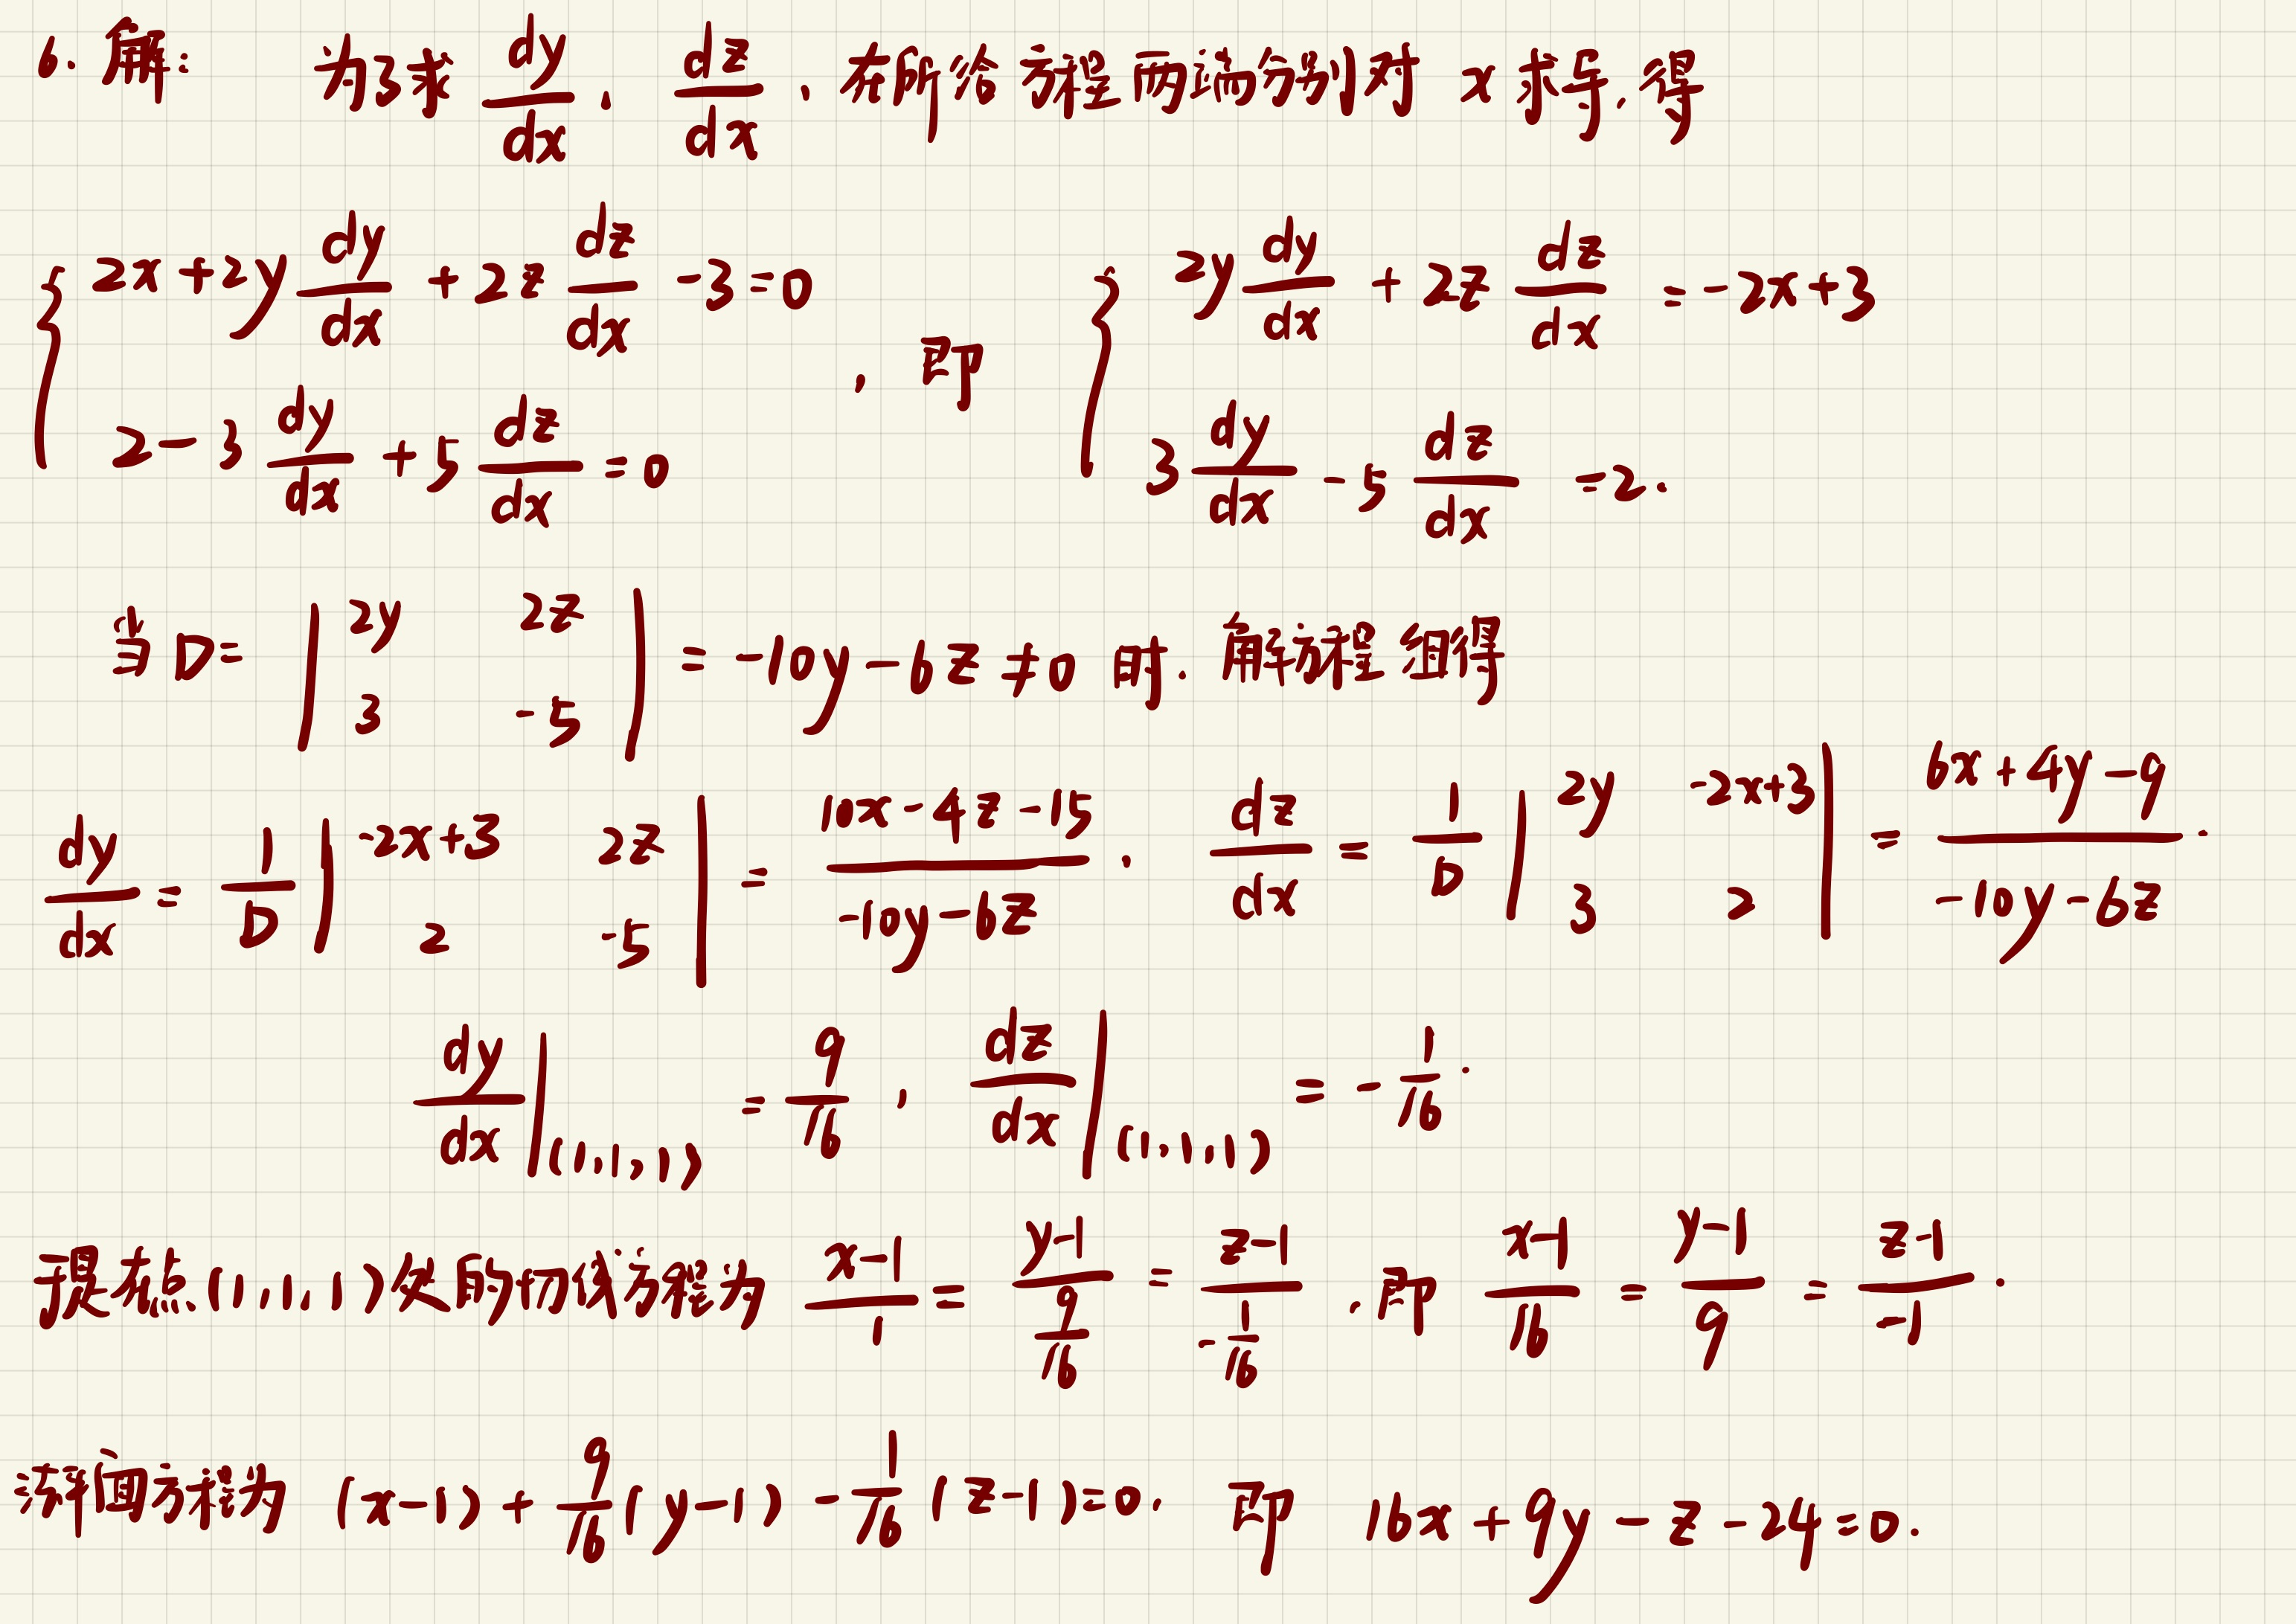 6. 解: 为了求 dy/dx, dz/dx, 在所给方程两端分别对 x 求导, 得
{ 2x + 2y dy/dx + 2z dz/dx - 3 = 0, 2 - 3 dy/dx + 5 dz/dx = 0 , 即 { 2y dy/dx + 2z dz/dx = -2x + 3, 3 dy/dx - 5 dz/dx = 2.
当 D = | 2y 2z ; 3 -5 | = -10y - 6z ≠ 0 时. 解方程组得
dy/dx = 1/D | -2x+3 2z ; 2 -5 | = (10x - 4z - 15)/(-10y - 6z) . dz/dx = 1/D | 2y -2x+3 ; 3 2 | = (6x + 4y - 9)/(-10y - 6z) .
dy/dx |(1,1,1) = 9/16 , dz/dx |(1,1,1) = - 1/16 .
于是在点(1,1,1)处的切线方程为 (x-1)/1 = (y-1)/(9/16) = (z-1)/(-1/16) , 即 (x-1)/16 = (y-1)/9 = (z-1)/(-1) .
法平面方程为 (x-1) + 9/16 (y-1) - 1/16 (z-1) = 0. 即 16x + 9y - z - 24 = 0.